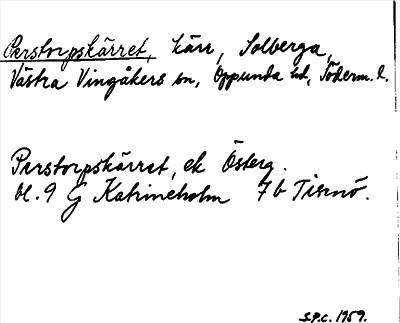 Perstorpskärret, kärr, Solberga,
Västra Vingåkers sn, Oppunda hd, Söderm. l.
Perstorpskärret, ek Österg.
bl. 9 G Katrineholm 7 b Tisnö.
S.P.C. 1959.